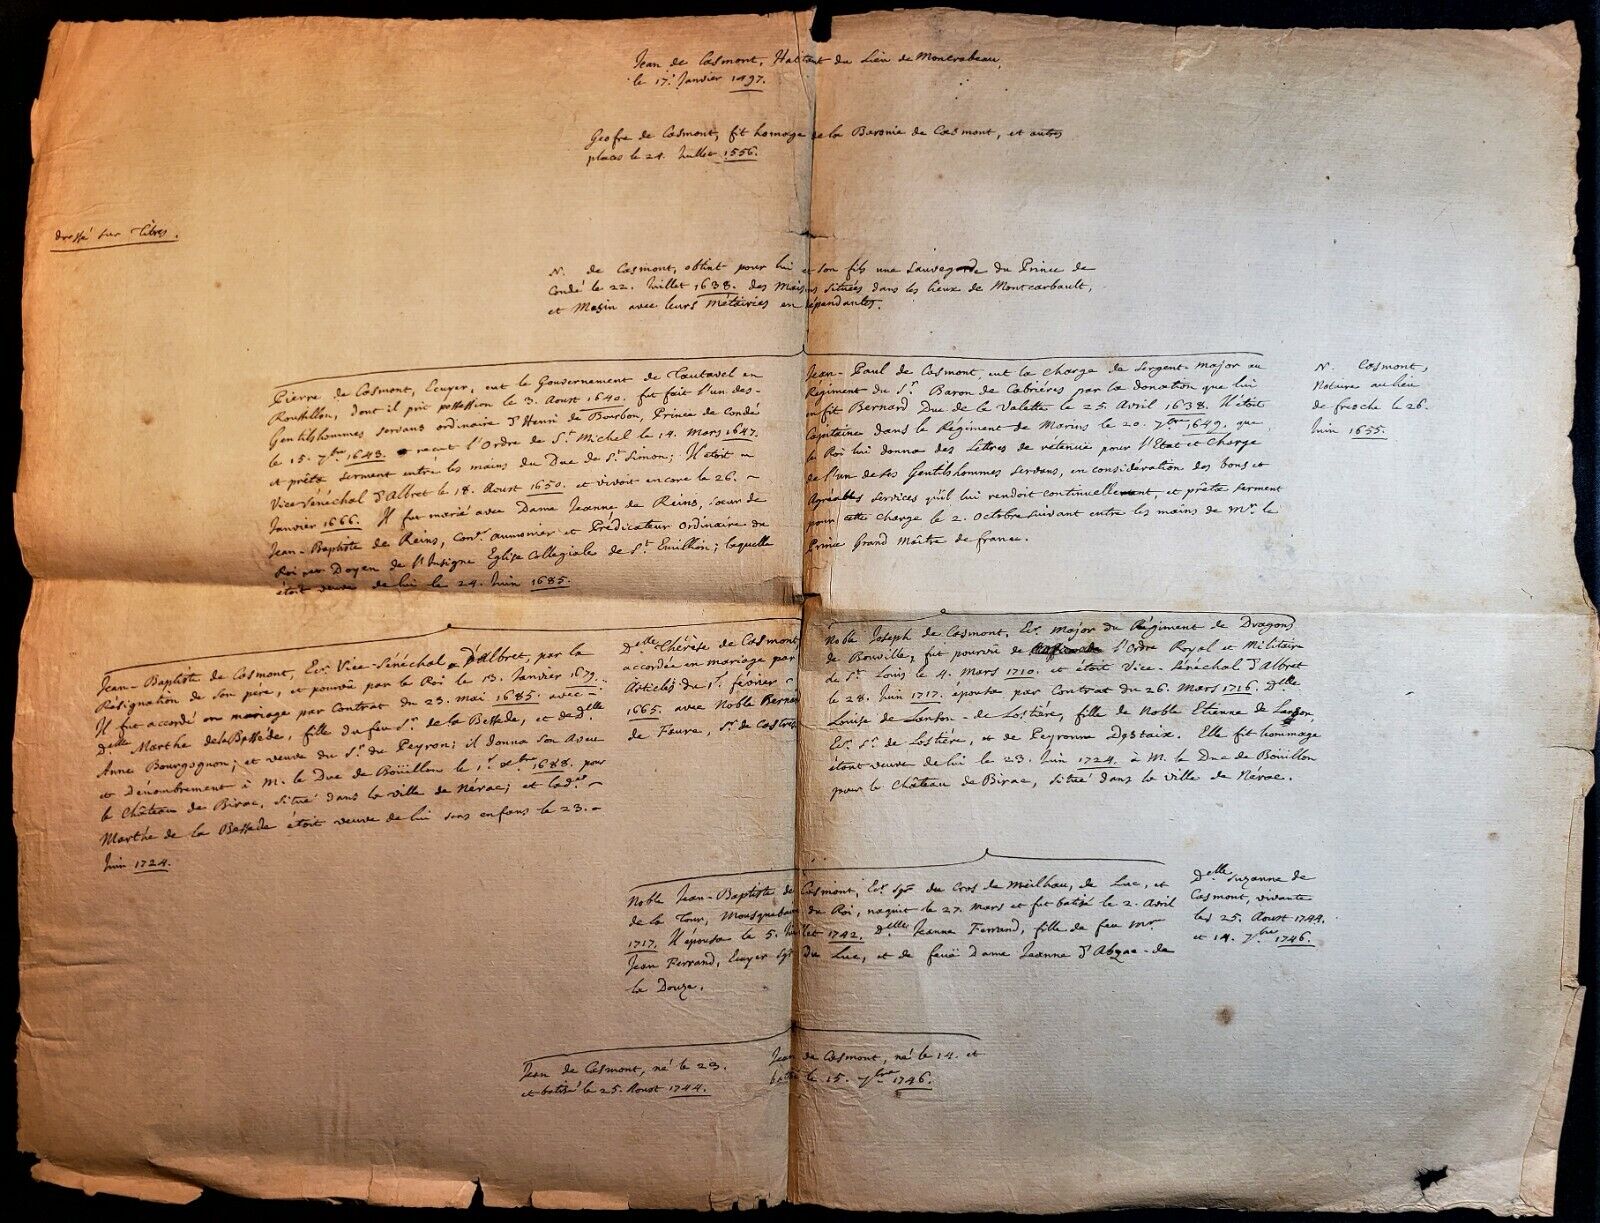 Jean de Casmont, Habitant du Lieu de Moncrabeau,
le 17. Janvier 1497.
Geofre de Casmont, fit homage de la Baronie de Casmont, et autres
places le 24. Juillet 1556.
dressé sur Titres.
N. de Casmont, obtint pour lui et son fils une Sauvegarde du Prince de
Condé le 22. Juillet 1638. des Maisons situées dans les lieux de Montcarbault,
et Mesin avec leurs métairies en dépendantes.
Pierre de Casmont, Ecuyer, eut le Gouvernement de Tautavel en
Roussillon, dont il prit possession le 3. Aoust 1640. fut fait l'un des
Gentilshommes servans ordinaire d'Henri de Bourbon, Prince de Condé
le 15. 7bre 1643. recut l'Ordre de St. Michel le 14. Mars 1647.
et prêta serment entre les mains du Duc de St. Simon; Il étoit
Vice-Sénéchal d'Albret le 18. Aoust 1650. et vivoit encore le 26.
Janvier 1666. Il fut marié avec Dame Jeanne de Reins, sœur de
Jean-Baptiste de Reins, Conr. aumonier et Prédicateur Ordinaire du
Roi Doyen de l'Insigne Eglise Collegiale de St. Emilhon; laquelle
étoit veuve de lui le 24. Juin 1685.
Jean-Paul de Casmont, eut la charge de Sergent-major au
Régiment du Sr. Baron de Cabriéres par la donation que lui
en fit Bernard Duc de la Valette le 25. Avril 1638. Il étoit
Capitaine dans le Régiment de Marins le 20. 7bre 1649. que
le Roi lui donna des Lettres de retenuë pour l'Etat et Charge
de l'un de ses Gentilshommes servans, en consideration des bons et
Agréables services qu'il lui rendoit continuellement, et prêta serment
pour cette charge le 2. Octobre suivant entre les mains de Mr. le
Prince Grand Maître de france.
N. Casmont,
Notaire au lieu
de fresche le 26.
Juin 1655.
Jean-Baptiste de Casmont, Ecr. Vice-Sénéchal d'Albret, par la
Résignation de son pere, et pourvû par le Roi le 13. Janvier 1679.
Il fut accordé en mariage par Contrat du 23. mai 1685. avec
Delle Marthe de la Bessede, fille du feu Sr. de la Bessede, et de Delle
Anne Bourgognon; et veuve du Sr. du Peyron; il donna son Aveu
et dénombrement à M. le Duc de Boüillon le 1r. xbre 1688. pour
le Château de Birac, situé dans la ville de Nérac; et lade.
Marthe de la Bessede étoit veuve de lui sans enfans le 23.
Juin 1724.
Delle Thérèse de Casmont
accordée en mariage par
Articles du 1r. février
1665. avec Noble Bernard
de Faure, Sr. de Castres
Noble Joseph de Casmont, Ecr. Major du Régiment de Dragons
de Bouville, fut pourvû de l'Ordre Royal et Militaire
de St. Louis le 4. Mars 1710. et étoit Vice-Sénéchal d'Albret
le 28. Juin 1717. épousa par Contrat du 26. Mars 1716. Delle
Louise de Lanson-de Lostiére, fille de Noble Etienne de Lanson,
Ecr. Sr. de Lostiére, et de Peyronne Dastaix. Elle fit hommage
étant veuve de lui le 23. Juin 1724. à M. le Duc de Boüillon
pour le Château de Birac, situé dans la ville de Nérac.
Noble Jean-Baptiste de Casmont, Ecr. Sgr. du Cros de Meilhau, de Luc, et
de la Tour, Mousquetaire du Roi, naquit le 27. Mars et fut batisé le 2. Avril
1717. Il épousa le 5. Juillet 1742. Delle Jeanne Ferrand, fille de feu Mr.
Jean Ferrand, Ecuyer Sgr. Du Luc, et de feuë Dame Jeanne d'Abzac-de
la Douze.
Delle Suzanne de
Casmont, vivante
les 25. Aoust 1744.
et 14. 7bre 1746.
Jean de Casmont, né le 23.
et batisé le 25. Aoust 1744.
Jean de Casmont, né le 14. et
batisé le 15. 7bre 1746.